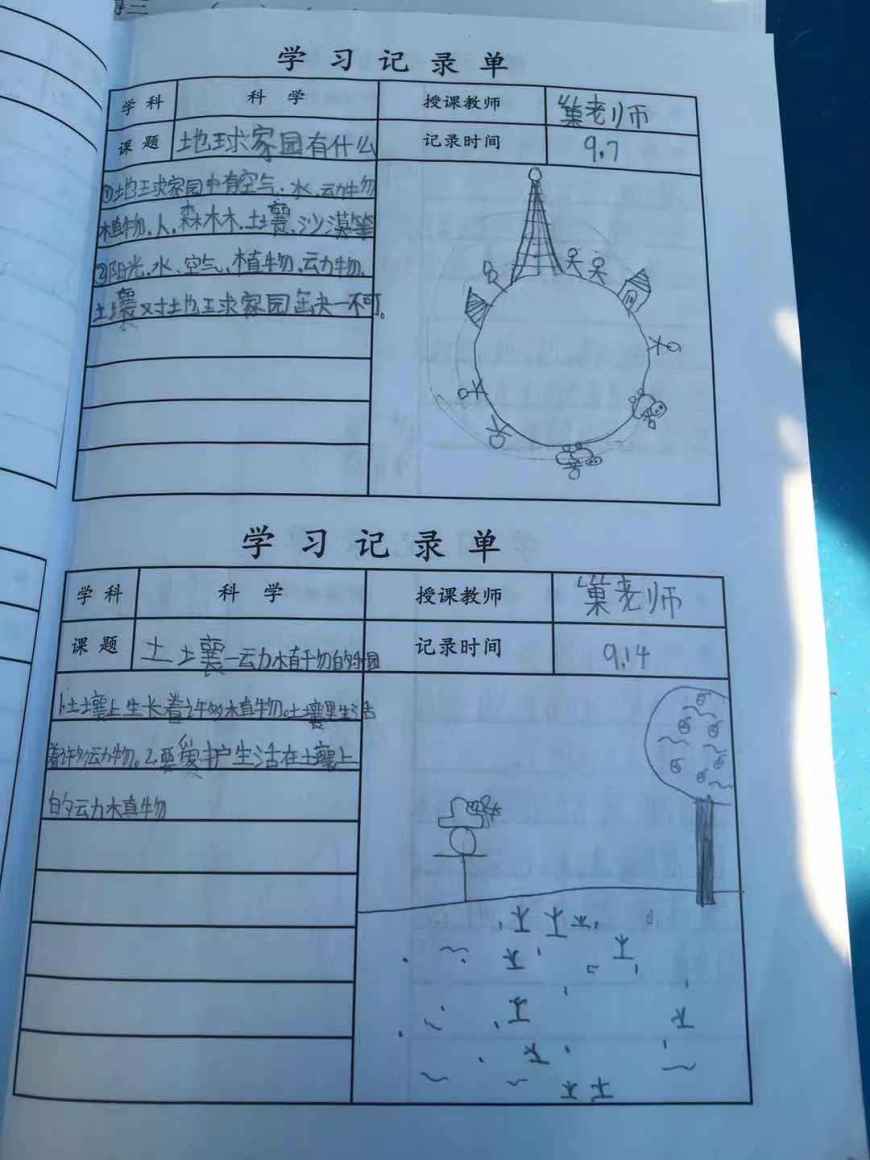 学习记录单
学科 科学 授课教师 巢老师
课题 地球家园有什么 记录时间 9.7
①地球家园中有空气、水、动物
植物、人、森林、土壤、沙漠等
②阳光、水、空气、植物、动物、
土壤对地球家园缺一不可。
学习记录单
学科 科学 授课教师 巢老师
课题 土壤—动植物的乐园 记录时间 9.14
1.土壤上生长着许多植物。土壤里生活
着许多动物。2.要爱护生活在土壤上
的动植物